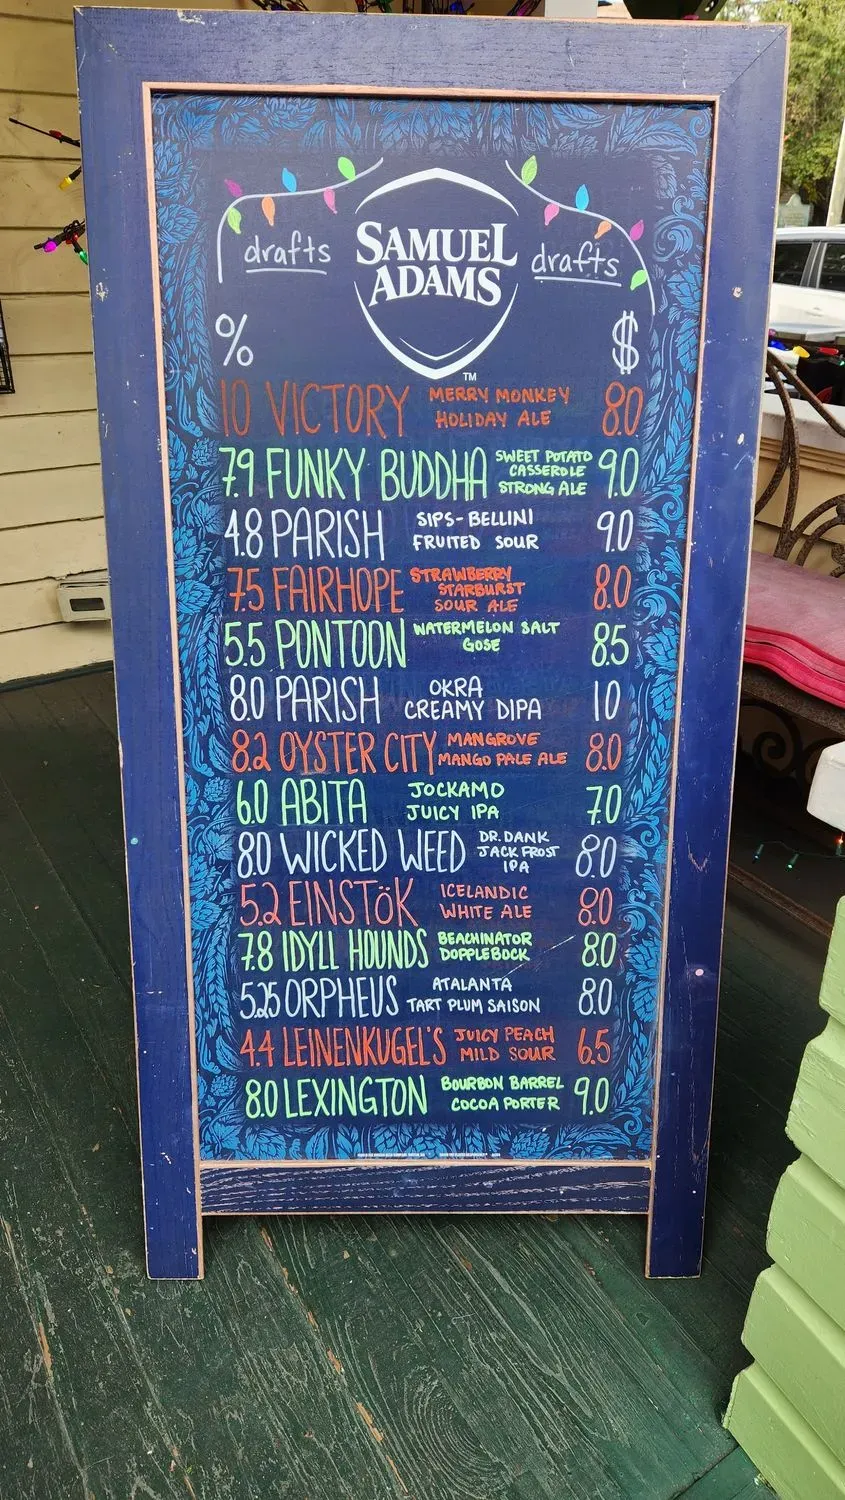 drafts SAMUEL ADAMS drafts
TM
% $
10 VICTORY MERRY MONKEY HOLIDAY ALE 8.0
7.9 FUNKY BUDDHA SWEET POTATO CASSEROLE STRONG ALE 9.0
4.8 PARISH SIPS-BELLINI FRUITED SOUR 9.0
7.5 FAIRHOPE STRAWBERRY STARBURST SOUR ALE 8.0
5.5 PONTOON WATERMELON SALT GOSE 8.5
8.0 PARISH OKRA CREAMY DIPA 10
8.2 OYSTER CITY MANGROVE MANGO PALE ALE 8.0
6.0 ABITA JOCKAMO JUICY IPA 7.0
8.0 WICKED WEED DR. DANK JACK FROST IPA 8.0
5.2 EINSTÖK ICELANDIC WHITE ALE 8.0
7.8 IDYLL HOUNDS BEACHINATOR DOPPLEBOCK 8.0
5.25 ORPHEUS ATALANTA TART PLUM SAISON 8.0
4.4 LEINENKUGEL'S JUICY PEACH MILD SOUR 6.5
8.0 LEXINGTON BOURBON BARREL COCOA PORTER 9.0